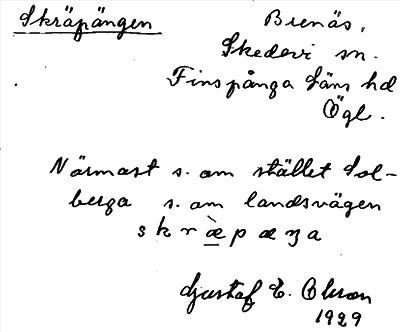 Skräpängen
Brenäs,
Skedevi sn.
Finspånga läns hd
Ögl.
Närmast s. om stället Sol-
berga s. om landsvägen
skræ̀pæŋa
Gustaf E. Olsson
1929